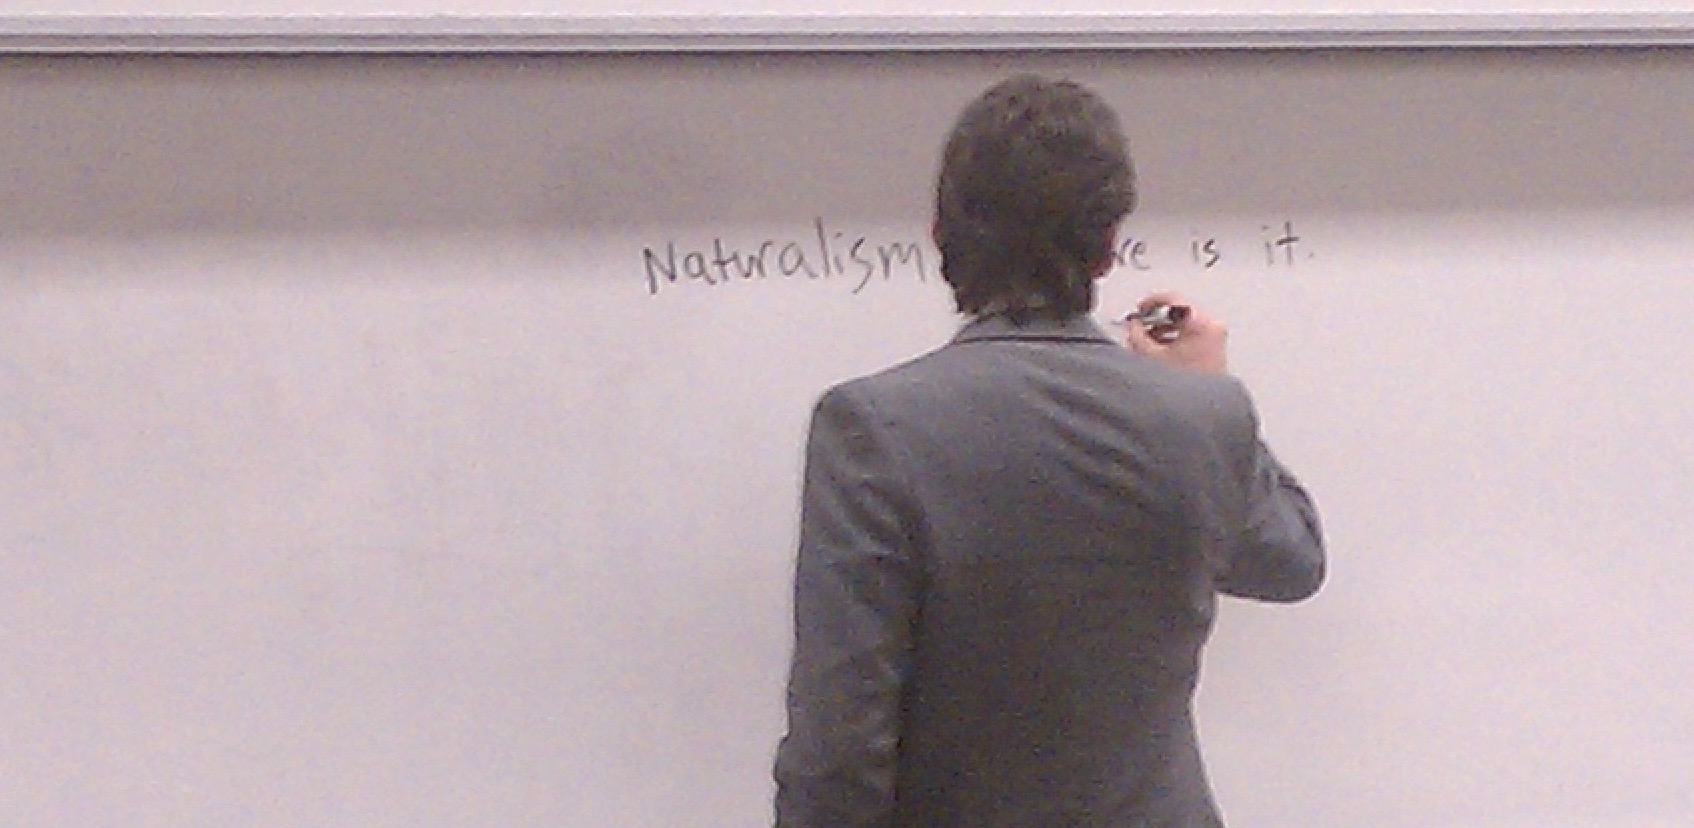 Naturalism re is it.